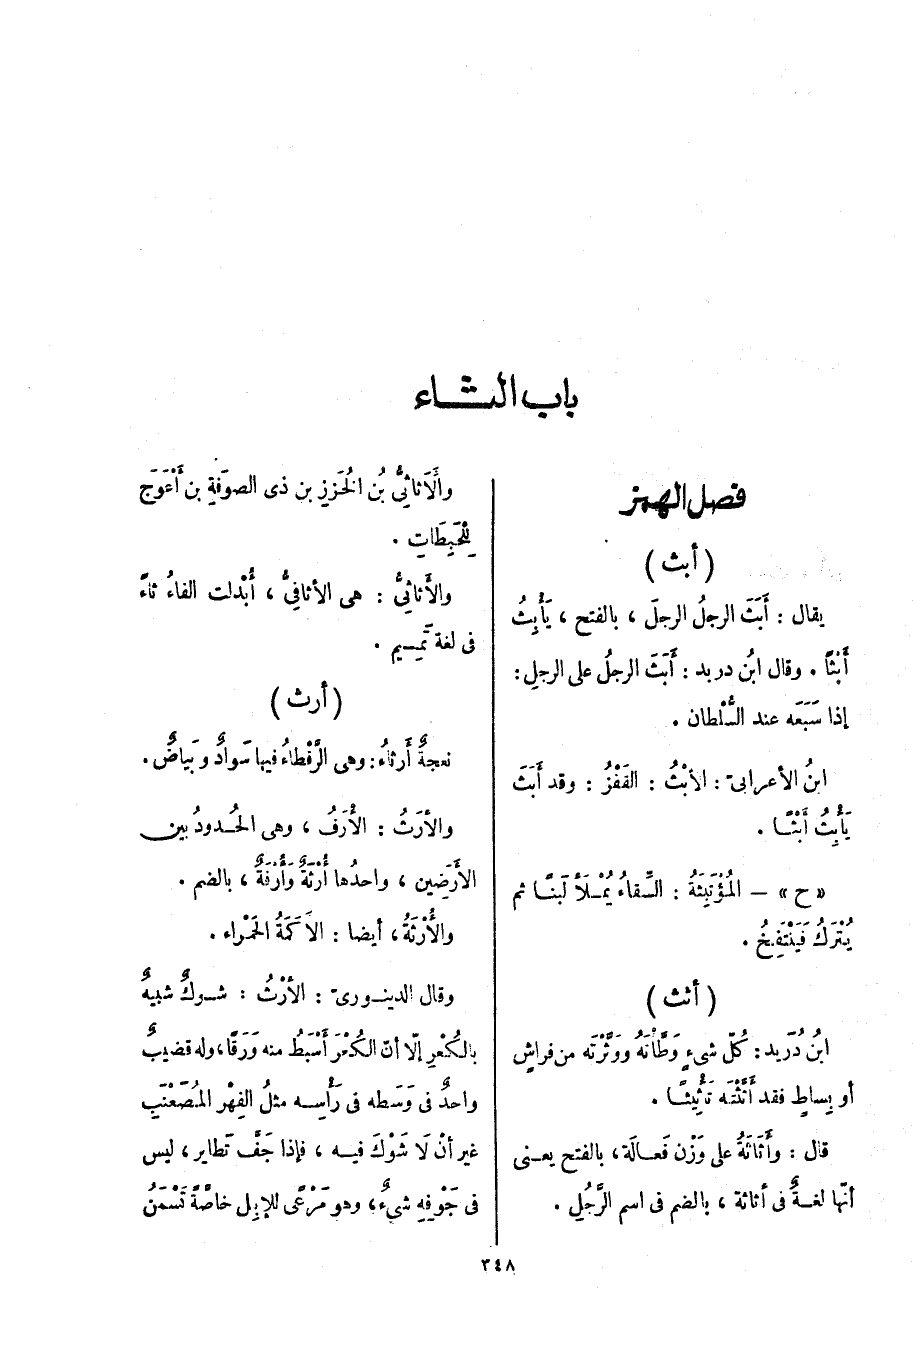 باب الثاء
فصل الهمز
(أبث)
يقال : أَبَثَ الرجلُ الرجلَ ، بالفتح ، يَأْبِثُ
أَبْثًا . وقال ابنُ دريد : أَبَثَ الرجلُ على الرجلِ :
إذا سَبَعَه عند السُّلْطان .
ابنُ الأعرابىّ : الأَبْثُ : القَفْزُ : وقد أَبَثَ
يَأْبِثُ أَبْثًا .
« ح » – المُؤْتَبِثَةُ : السِّقاءُ يُمْلَأُ لَبَنًا ثم
يُتْرَكُ فَيَنْتَفِخُ .
(أثث)
ابنُ دُرَيد : كُلّ شىءٍ وَطَّأْتَهُ ووَثَّرْتَه من فراشٍ
أو بِساطٍ فقد أَثَّثْتَه تَأْثِيثًا .
قال : وأَثَاثَةُ على وَزْن فَعالَة ، بالفتح يعنى
أنّها لغةٌ فى أثاثة ، بالضم فى اسم الرَّجُلِ .
والأَثاثِىُّ بنُ الخُزَزِ بن ذى الصوّفةِ بن أَعْوَجَ
لِلْحَبِطَاتِ .
والأَثاثِىُّ : هى الأثافىُّ ، أُبْدلت الفاءُ ثاءً
فى لغة تَميم .
(أرث)
نعجةٌ أَرثاءُ : وهى الرَّقْطاءُ فيها سَوادٌ وبَياضٌ .
والأُرَثُ : الأُرَفُ ، وهى الحُدودُ بين
الأَرَضِين ، واحدُها أُرْثَةٌ وأُرْفَةٌ ، بالضم .
والأُرْثَةُ ، أيضا : الأَكَمَةُ الحَمْراء .
وقال الدينورىّ : الأُرْثُ : شوكٌ شبيهٌ
بالكُعْرِ إلّا أنّ الكُعْرَ أَسْبَطُ منه وَرَقًا ، وله قضيبٌ
واحدٌ فى وَسَطه فى رَأْسِه مثلُ الفِهْر المُصَعْنَبِ
غير أنْ لَا شَوْكَ فيه ، فإذا جَفَّ تَطاير ، ليس
فى جَوْفِهِ شىءٌ ، وهو مَرْعًى للإبِل خاصَّةً تَسْمَنُ
٣٤٨